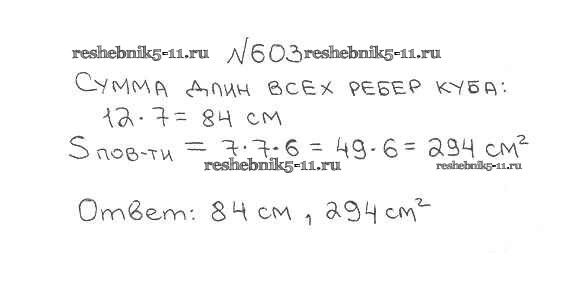 reshebnik5-11.ru №603 reshebnik5-11.ru
Сумма длин всех ребер куба:
12·7=84 см
Sпов-ти = 7·7·6=49·6=294 см²
reshebnik5-11.ru reshebnik5-11.ru
Ответ: 84 см, 294 см²